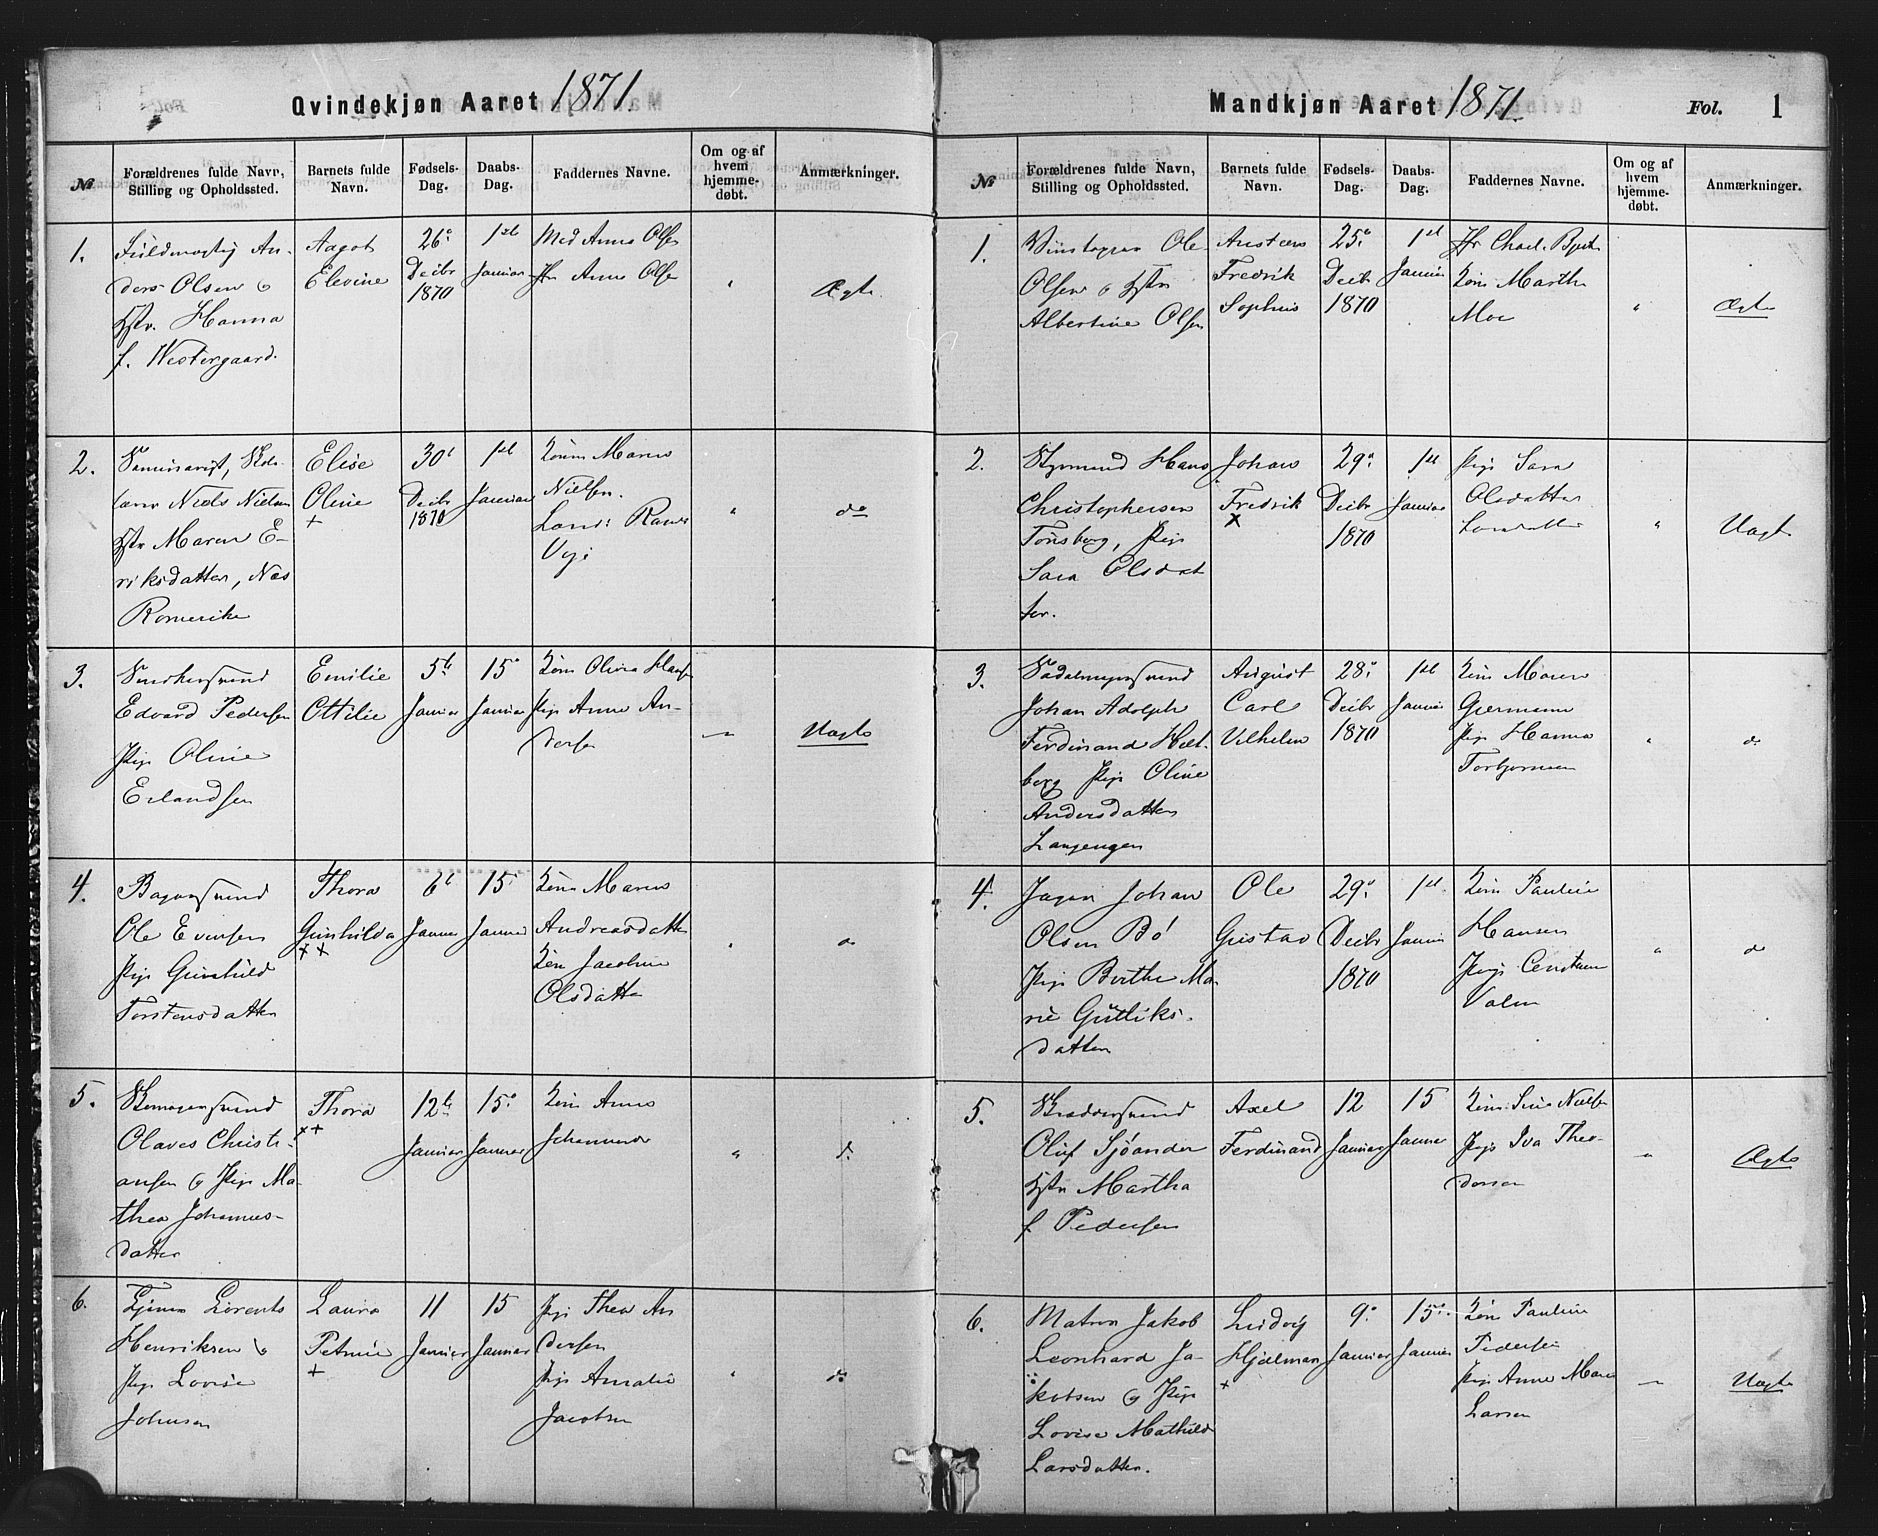 Qvindekjøn Aaret 1871
№
Forældrenes fulde Navn, Stilling og Opholdssted.
Barnets fulde Navn.
Fødsels-Dag.
Daabs-Dag.
Faddernes Navne.
Om og af hvem hjemme-døbt.
Anmærkninger.
1.
Fuldmægtig An-
ders Olsen &
Hstr. Hanna
f. Westergaard.
Aagot
Elevine
26
Decbr
1870
1ste
Januar
Mad Anna Olsen
Anna Olsen
"
Ægte
2.
Seminarist,
Niels Nielsen
Hstr Maren E-
riksdatter, Næs
Romerike
Elise
Oline
+
30
Decbr
1870
1ste
Januar
Maren
Nielsen.
"
do
3.
Edvard Pedersen
Pige Oline
Erlandsen
Emilie
Ottilie
5te
Januar
15
Januar
Kone Olivia
Pige Anna An-
dersen
"
Uægte
4.
Ole Evensen
Pige Gunhild
Torstensdatter
Thora
Gunhilda
++
6
Januar
15
Januar
Kone Maren
Andreasdatter
Kone Jacobine
Olsdatter
"
do
5.
Skomagersvend
Olaves Christi-
ansen & Pige Ma-
thea Johannes-
datter
Thora
++
12te
Januar
15
Januar
Kone Anna
"
do
6.
Lorents
Henriksen &
Pige Lovise
Johnsen
Laura
Petrine
+
11
Januar
15
Januar
Pige Thea An
dersen
Pige Amalie
Jacobsen
"
do
Mandkjøn Aaret 1871.
Fol. 1
№
Forældrenes fulde Navn, Stilling og Opholdssted.
Barnets fulde Navn.
Fødsels-Dag.
Daabs-Dag.
Faddernes Navne.
Om og af hvem hjemme-døbt.
Anmærkninger.
1.
Ole
Olsen & Hstr
Albertine Olsen
Fredrik
Sophus
25
Decbr
1870
1ste
Januar
Kone Marthe
Moe
"
Ægte
2.
Styrmand Hans
Christophersen
Tønsberg, Pige
Sara Olsdat
ter.
Johan
Fredrik
x
29
Decbr
1870
1ste
Januar
Pige Sara
Olsdatter
"
Uægte
3.
Sadelmagersvend
Johan Adolph
Ferdinand
Pige Oline
Andersdatter
Langengen
August
Carl
Vilhelm
28
Decbr
1870
1ste
Januar
Kone Maren
Pige Hanna
Torbjørnsen
"
do
4.
Johan
Olsen Bö
Pige Berthe Ma-
rie Gulliks-
datter
Ole
Gustav
29
Decbr
1870
1ste
Januar
Kone Pauline
Hansen
Pige
"
do
5.
Oluf Sjöander
Hstr Martha
f. Pedersen
Axel
Ferdinand
12
Januar
15
Januar
Kone
Pige Iva Theo-
dorsen
"
Ægte
6.
Matros Jakob
Leonhard Ja-
kobsen & Pige
Lovise Mathilde
Larsdatter.
Ludvig
Hjalmar
+
9
Januar
15
Januar
Kone Pauline
Pedersen
Pige Anne Marie
Larsen
"
Uægte